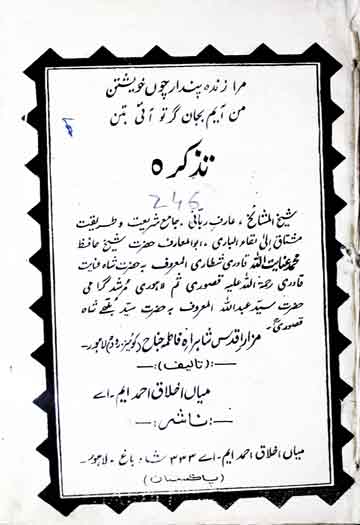 مرا زندہ پندار چوں خویشتن
من آیم بجان گر تو آئی بتن
تذکرہ
246
شیخ المشائخ، عارفِ ربانی، جامع شریعت و طریقت
مشتاق إلی لقاء الباری، ابو المعارف حضرت شیخ حافظ
محمد عنایت اللہ قادری شطاری المعروف بہ حضرت شاہ عنایت
قادری رحمۃ اللہ علیہ قصوری ثم لاہوری مرشد گرامی
حضرت سید عبداللہ المعروف بہ حضرت سید بلھے شاہ
قصوری
مزار اقدس شاہراہ فاطمہ جناح (کوئینز روڈ) لاہور۔
:(تالیف):
میاں اخلاق احمد ایم۔اے
:ناشر:
میاں اخلاق احمد ایم۔اے ۳۳۳ شاد باغ ۔ لاہور۔
(پاکستان)